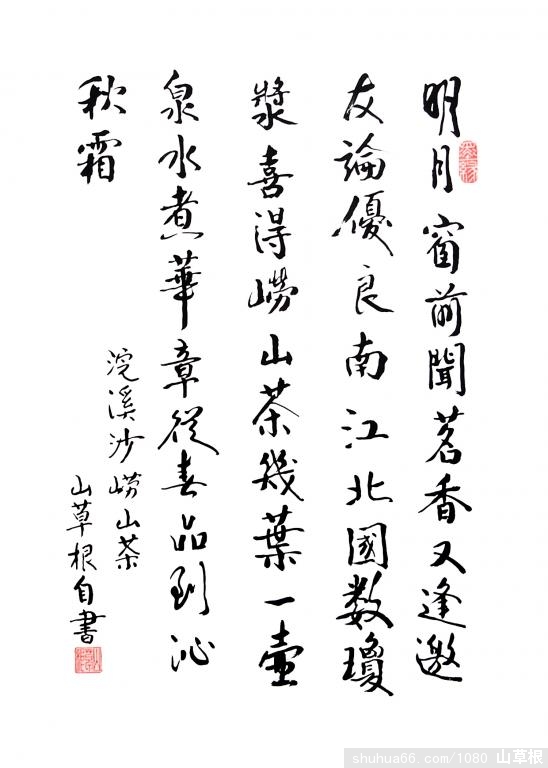 明月窗前聞茗香又逢邀
友論優良南江北國数瓊
漿喜得崂山茶幾葉一壺
泉水煮華章從春品到沁
秋霜
浣溪沙崂山茶
山草根自書
shuhua66.com/1080 山草根